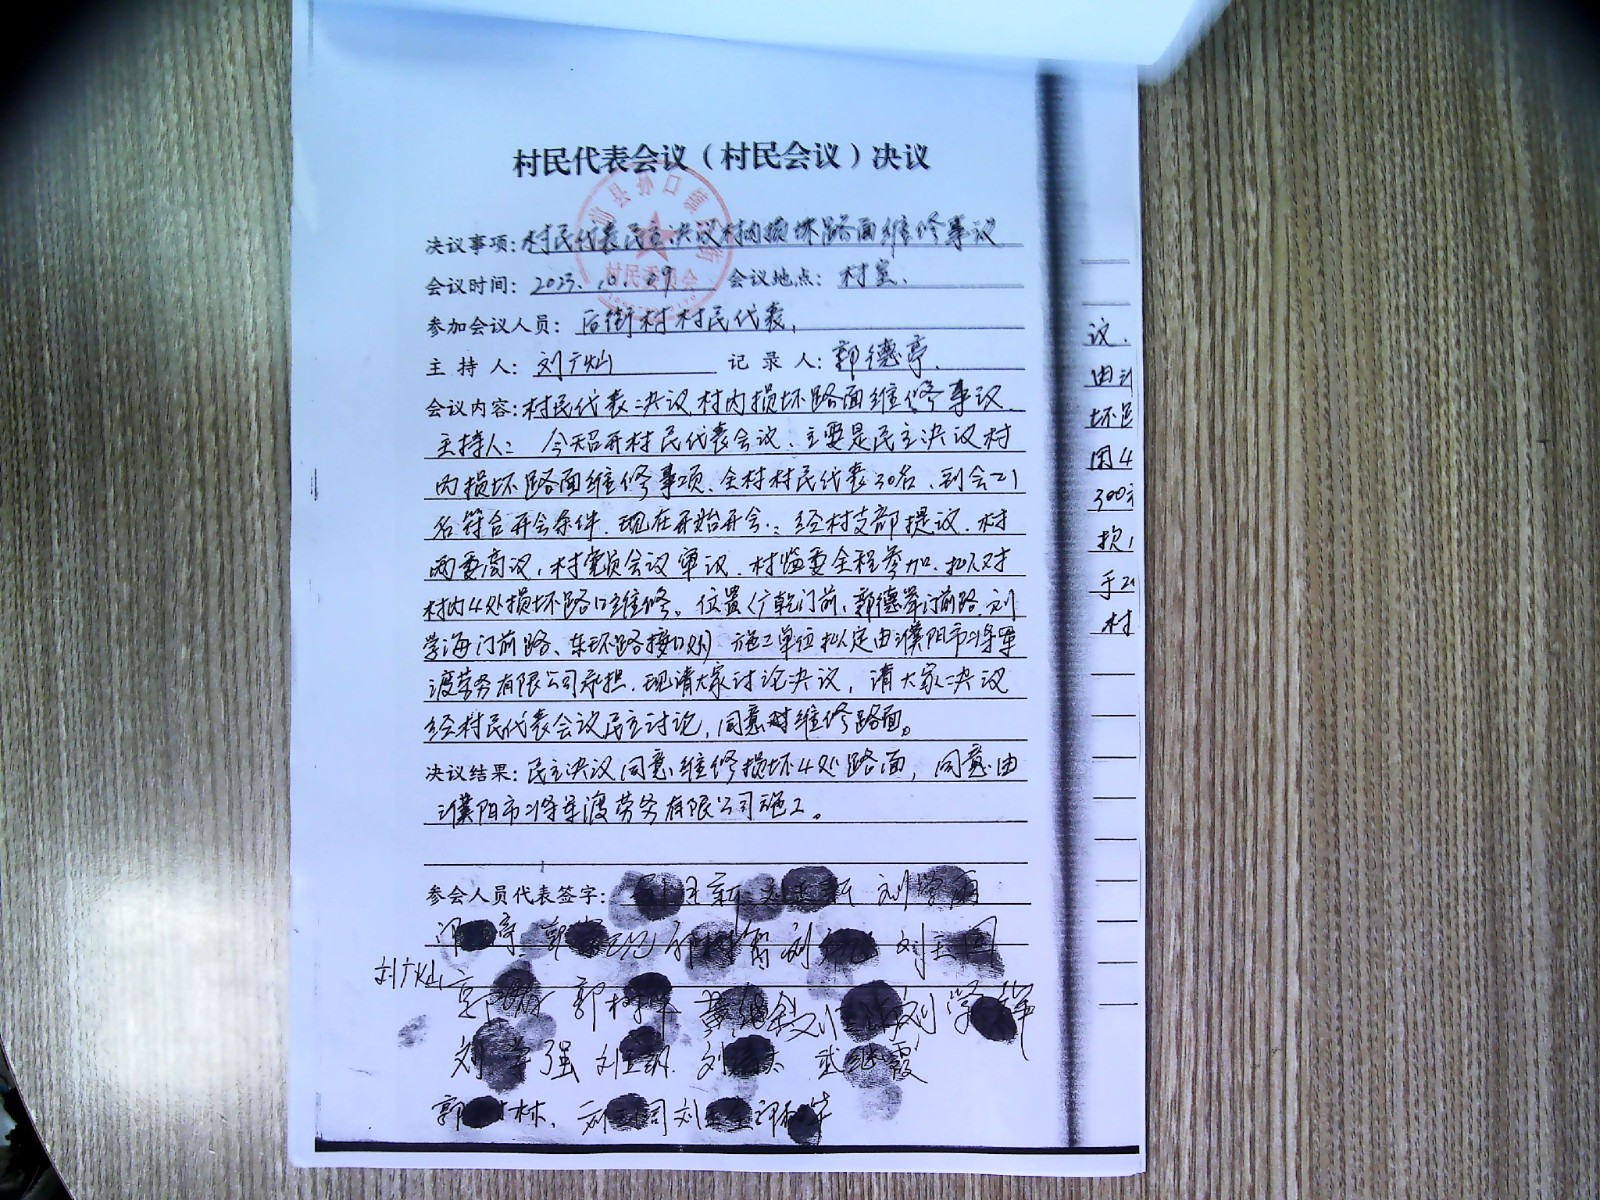 村民代表会议（村民会议）决议
决议事项：村民代表民主决议村内损坏路面维修事议
会议时间：2023. 会议地点：村室.
参加会议人员：后街村村民代表,
主持人：刘广灿 记录人：郭德亭.
会议内容：村民代表决议村内损坏路面维修事议.
主持人： 今天召开村民代表会议、主要是民主决议村
内损坏路面维修事项、全村村民代表30名、到会21
名符合开会条件. 现在开始开会： 经村支部提议、村
两委商议，村党员会议审议、村监委全程参加、拟对
村内4处损坏路口维修。位置（广乾门前、郭德学门前路 刘
学海门前路、东环路接口处） 施工单位拟定由濮阳市将军
渡劳务有限公司承担. 现请大家讨论决议，请大家决议
经村民代表会议民主讨论，同意对维修路面。
决议结果：民主决议同意维修损坏4处路面，同意由
濮阳市将军渡劳务有限公司施工。
参会人员代表签字： 刘学雨
刘玉国
刘广灿 郭树 刘学
刘学强 刘 武继霞
郭 林、 刘 同 刘
村民委员会
议.
由
坏
因4
300
损
于
村